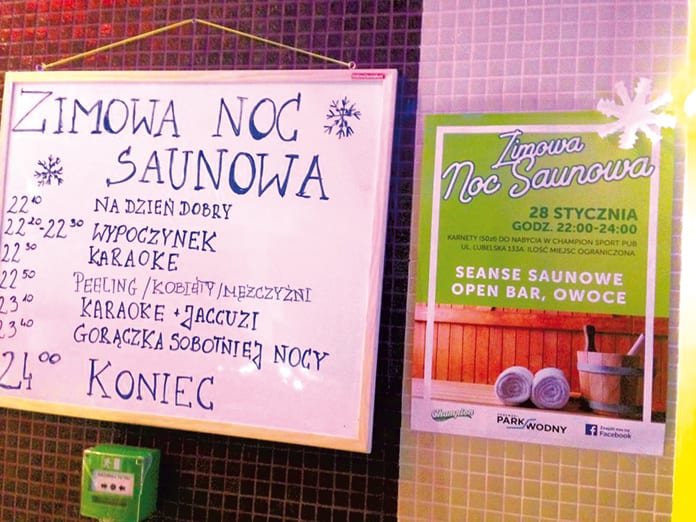 ZIMOWA NOC
SAUNOWA
22¹⁰ NA DZIEŃ DOBRY
22²⁰-22³⁰ WYPOCZYNEK
22³⁰ KARAOKE
22⁵⁰ PEELING/KOBIETY/MĘŻCZYŹNI
23¹⁰ KARAOKE + JACCUZI
23⁴⁰ GORĄCZKA SOBOTNIEJ NOCY
24⁰⁰ KONIEC
Zimowa
Noc Saunowa
28 STYCZNIA
GODZ. 22:00-24:00
KARNETY (50zł) DO NABYCIA W CHAMPION SPORT PUB
UL. LUBELSKA 133A. ILOŚĆ MIEJSC OGRANICZONA
SEANSE SAUNOWE
OPEN BAR, OWOCE
Champion
PARK WODNY
Znajdź nas na
Facebook